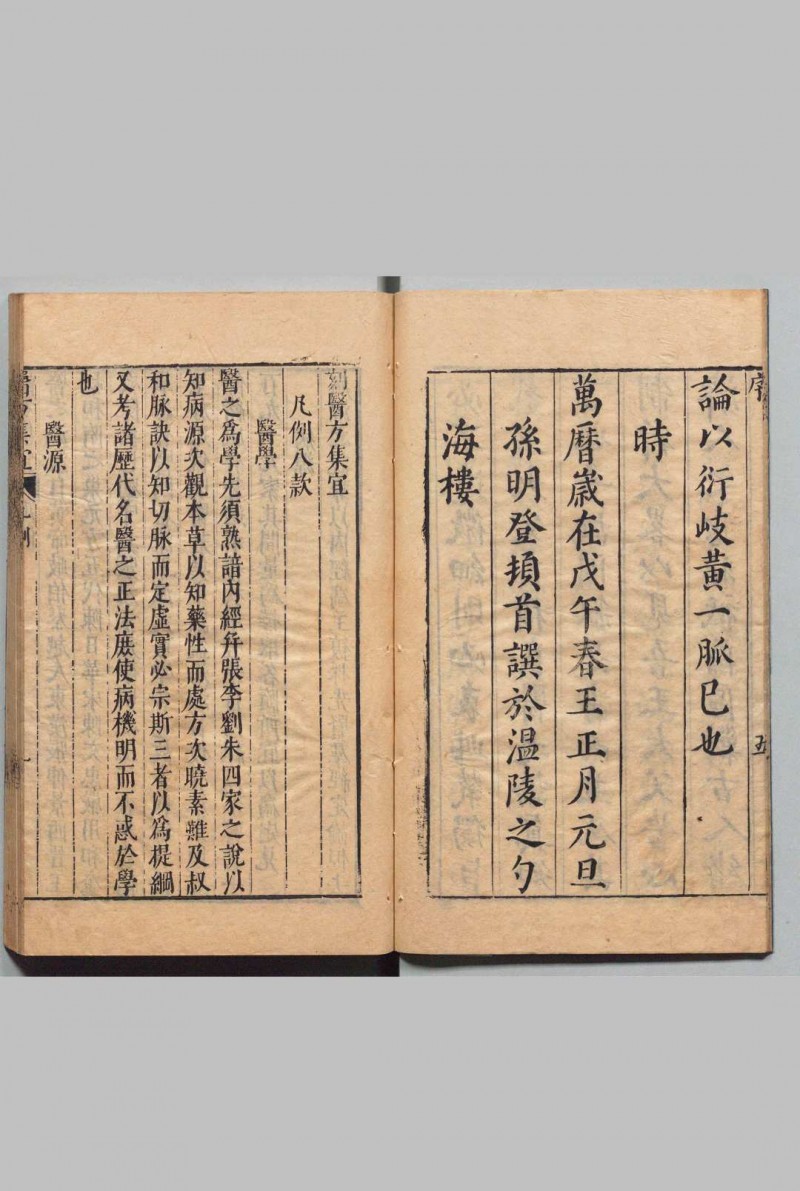 序 五
論以衍岐黃一脈已也
時
萬曆歲在戊午春王正月元旦
孫明登頓首譔於温陵之勺
海樓
刻醫方集宜
凡例八款
醫學
醫之爲學先須熟諳内經幷張李劉朱四家之說以
知病源次觀本草以知藥性而處方次曉素難及叔
和脉訣以知切脉而定虛實必宗斯三者以爲提綱
又考諸歷代名醫之正法庻使病機明而不惑於學
也
醫源
醫方集宜 凡例 一